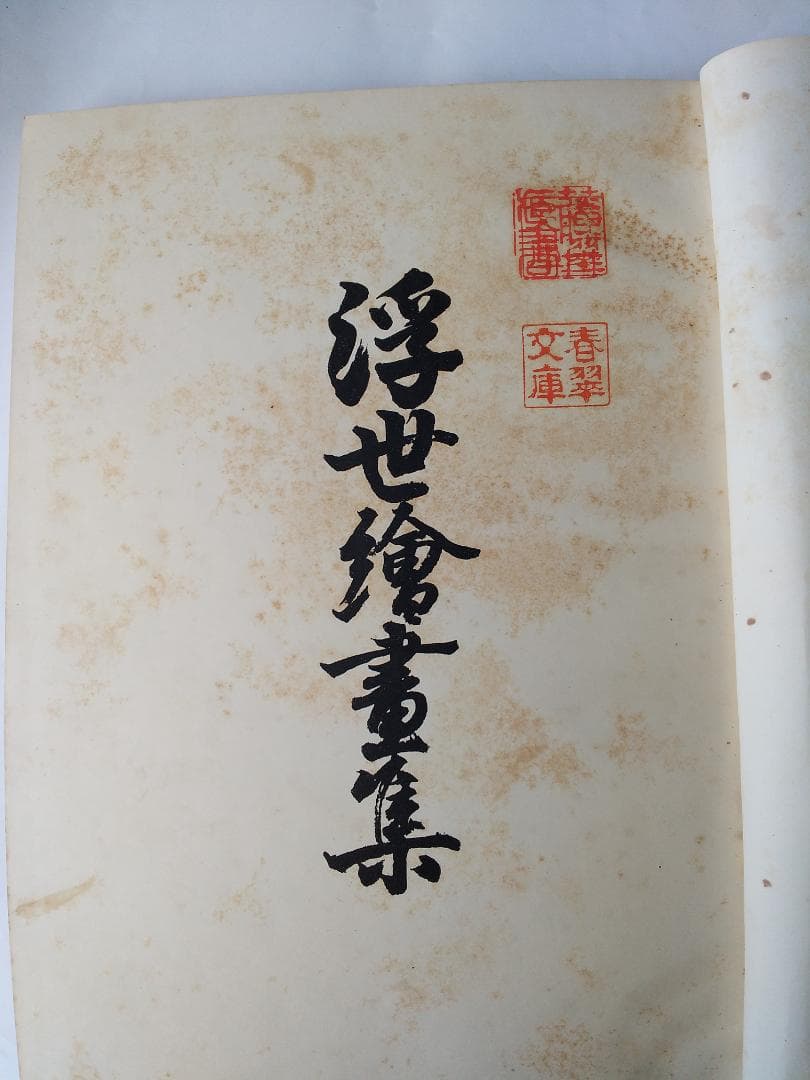 浮世繪畫集
春翠
文庫